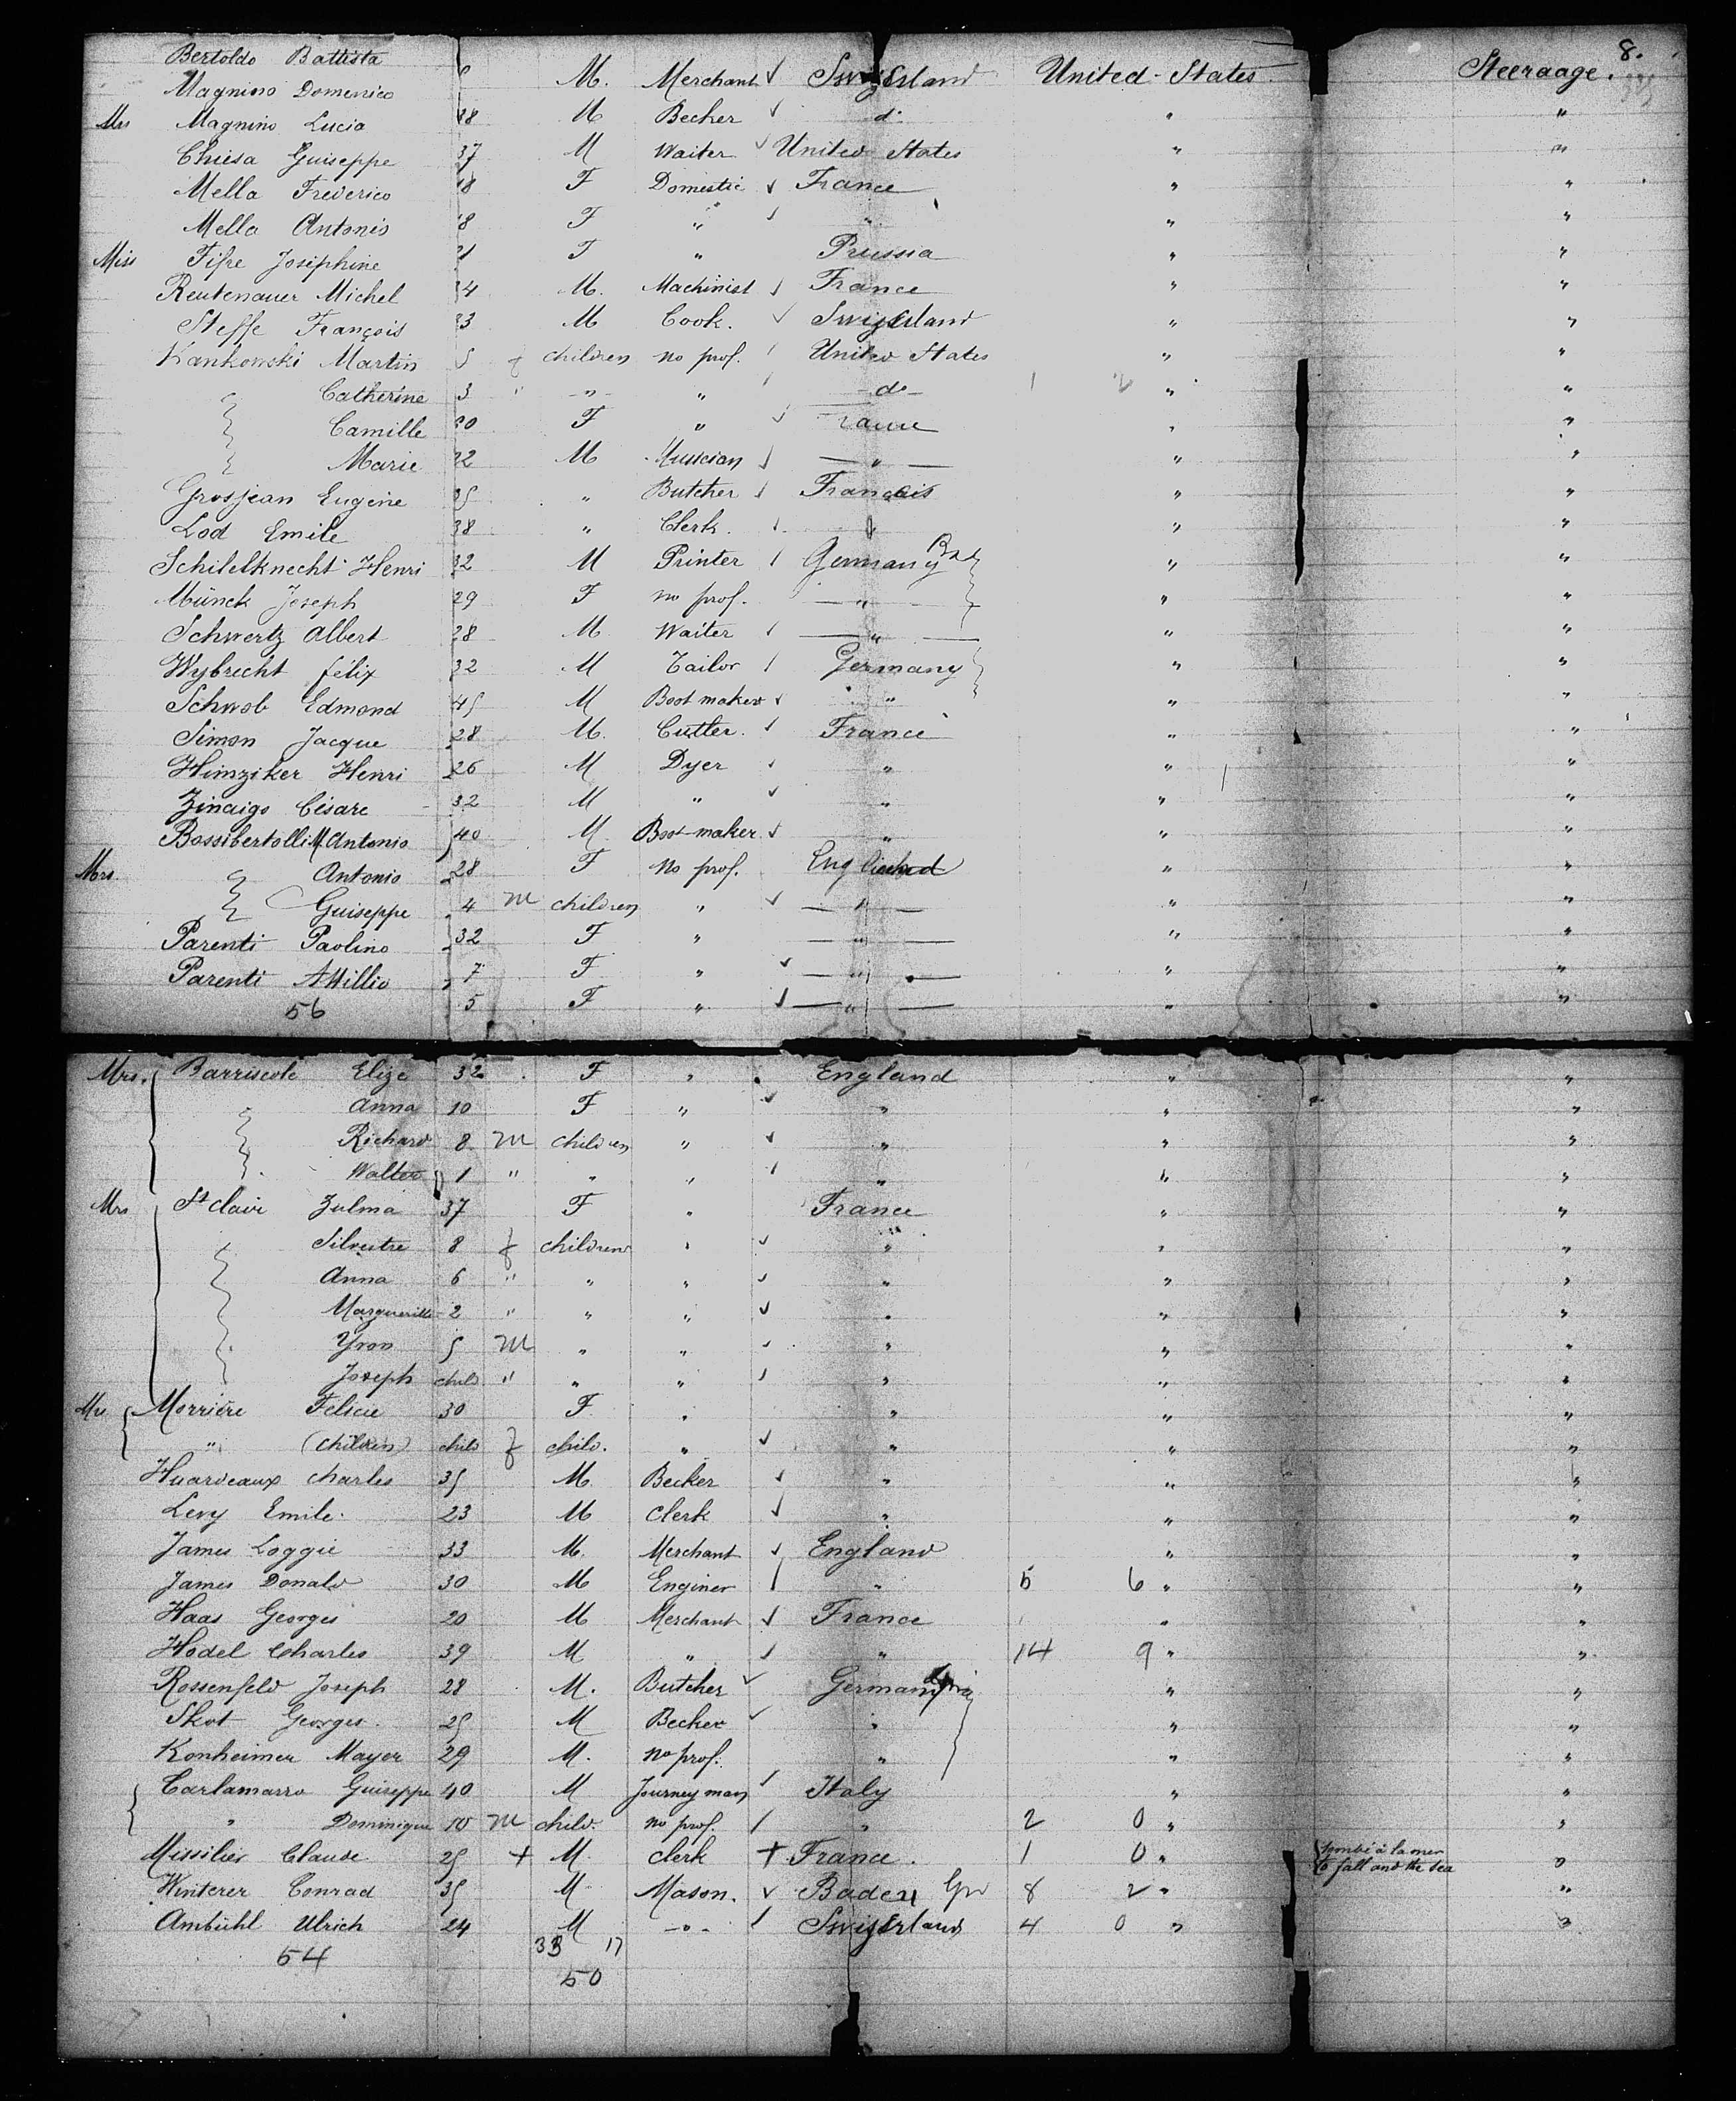 8.
Bertoldo Battista
Magnino Domenico M. Merchant Swizerland United States Steeraage.
Mrs Magnino Lucia 38 M Becher do " "
Chiesa Guiseppe 37 M Waiter United States " "
Mella Frederico 18 F Domestic France " "
Mella Antonio 18 F " " " "
Miss Fifre Joséphine 21 F " Prussia " "
Reutenauer Michel 34 M. Machinist France " "
Steffe François 33 M Cook. Swizerland " "
Kankowski Martin 5 f children no prof. United States " "
Catherine 3 " " " do 1 2 " "
Camille 20 F " France " "
Marie 22 M Mussician " " "
Grosjean Eugène 35 " Butcher Francais " "
Lod Emile 38 " Clerk. " " "
Schildknecht Henri 32 M Printer Germany " "
Münck Joseph 29 F no prof. " " "
Schwertz Albert 28 M Waiter " " "
Wybrecht félix 32 M Tailor Germany " "
Schwob Edmond 45 M Boot maker " " "
Simon Jacque 28 M. Cutler. France " "
Himziker Henri 26 M Dyer " " "
Zinaigo Césare 32 M " " " "
Bossibertolli M. Antonio 40 M Boot-maker " " "
Mrs. " Antonio 28 F No prof. England " "
Guiseppe 4 m children " " " "
Parenti Paolino 32 F " " " "
Parenti Attilio 7 F " " " "
56 5 F " " " "
Mrs. Barriscole Eliza 32 F " England " "
Anna 10 F " " " "
Richard 8 m children " " " "
Walter 1 " " " " " "
Mrs St Clair Zulma 37 F " France " "
Silvestre 8 f children " " " "
Anna 6 " " " " " "
Marguerille 2 " " " " " "
Yvon 5 m " " " " "
Joseph child " " " " " "
Mrs Morrière Felicie 30 F " " " "
" (children) child f child. " " " "
Huardeaux Charles 35 M. Becker " " "
Levy Emile. 23 M Clerk " " "
James Loggie 33 M. Merchant England " "
James Donald 30 M Enginer " 5 6 " "
Haas Georges 20 M Merchant France " "
Hodel Charles 39 M " " 14 9 " "
Rossenfeld Joseph 28 M. Butcher Germany " "
Skot Georges. 25 M Becher " " "
Konheimer Mayer 29 M. no prof. " " "
Carlamarro Guiseppe 40 M Journey man Italy " "
" Dominique 10 m child. no prof. " 2 0 " "
Missilier Claude 25 + M. Clerk + France. 1 0 " tombé à la mer "
to fall and the sea
Winterer Conrad 35 M Mason. Baden 8 2 " "
Ambühl Ulrich 24 M -"- Swizerland 4 0 " "
54 33 17
50